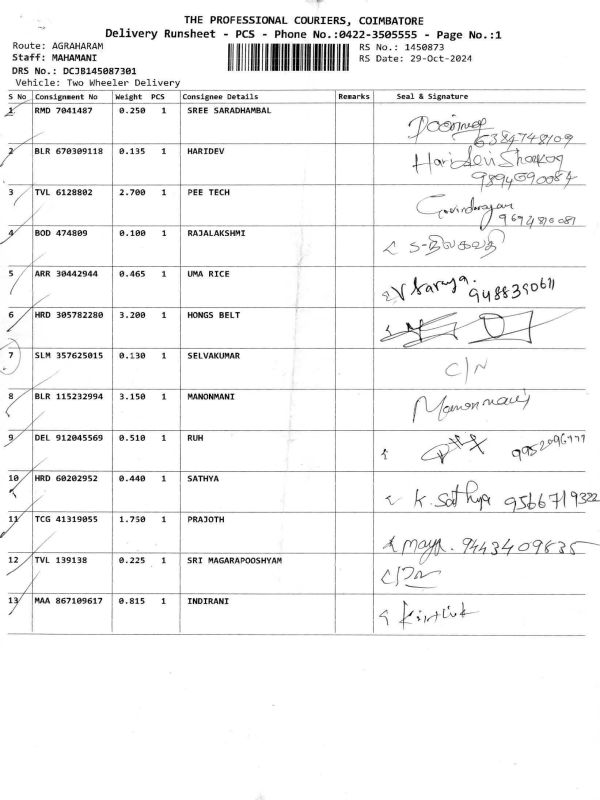 THE PROFESSIONAL COURIERS, COIMBATORE
Delivery Runsheet - PCS - Phone No.:0422-3505555 - Page No.:1
Route: AGRAHARAM RS No.: 1450873
Staff: MAHAMANI RS Date: 29-Oct-2024
DRS No.: DCJB145087301
Vehicle: Two Wheeler Delivery
S No Consignment No Weight PCS Consignee Details Remarks Seal & Signature
1 RMD 7041487 0.250 1 SREE SARADHAMBAL
6384748109
2 BLR 670309118 0.135 1 HARIDEV Haridev
9894690084
3 TVL 6128802 2.700 1 PEE TECH Govindarajan
9694816081
4 BOD 474809 0.100 1 RAJALAKSHMI
5 ARR 30442944 0.465 1 UMA RICE V Saraya. 9488390611
6 HRD 305782280 3.200 1 HONGS BELT
7 SLM 357625015 0.130 1 SELVAKUMAR C/N
8 BLR 115232994 3.150 1 MANONMANI Manonmani
9 DEL 912045569 0.510 1 RUH
10 HRD 60202952 0.440 1 SATHYA K. Sathya 9566719322
11 TCG 41319055 1.750 1 PRAJOTH Maya. 9443409835
12 TVL 139138 0.225 1 SRI MAGARAPOOSHYAM
13 MAA 867109617 0.815 1 INDIRANI